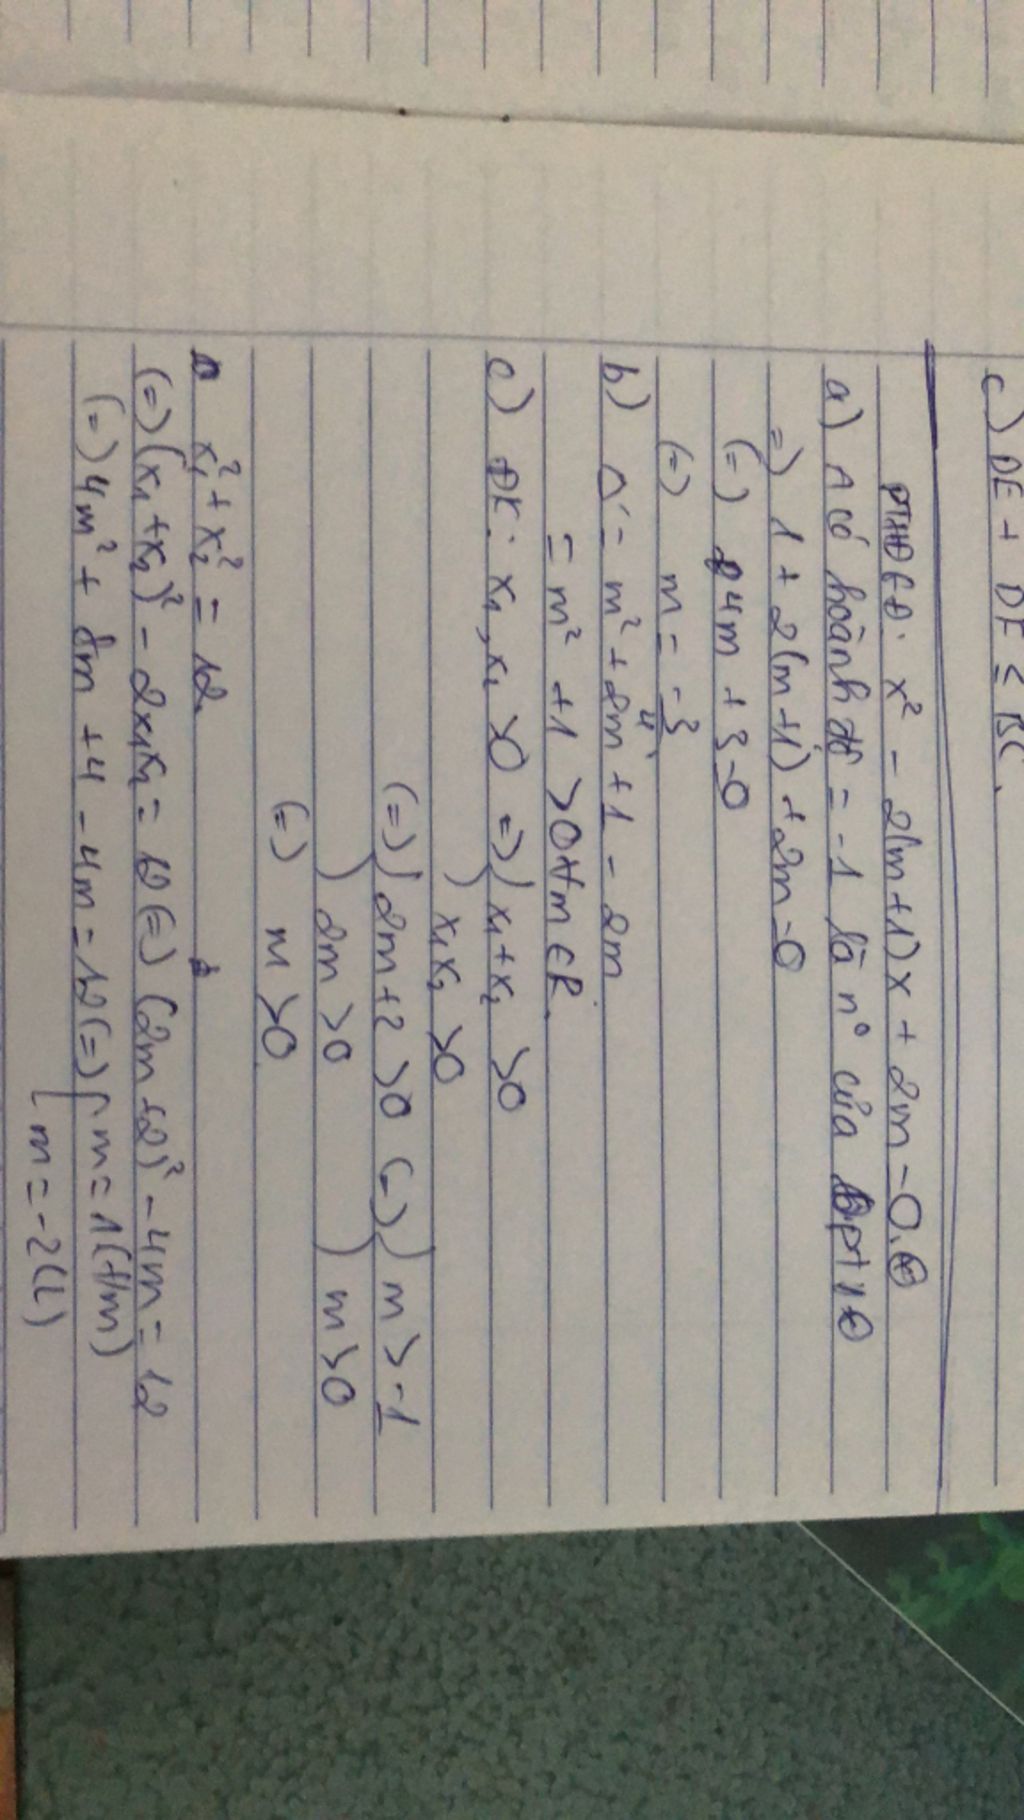 c) DE + DF ≤ BC.
PTHĐGĐ: x² - 2(m+1)x + 2m = 0. ⊛
a) A có hoành độ = -1 là n° của pt ⊛
=) 1 + 2(m+1) + 2m = 0
(=) 4m + 3 = 0
(=) m = -3/4.
b) Δ' = m² + 2m + 1 - 2m
= m² + 1 > 0 ∀m ∈ R.
c) ĐK: x₁, x₂ > 0 =) { x₁ + x₂ > 0
{ x₁x₂ > 0
(=) { 2m + 2 > 0 (=) { m > -1
{ 2m > 0 { m > 0
(=) m > 0
x₁² + x₂² = 12.
(=) (x₁ + x₂)² - 2x₁x₂ = 12 (=) (2m + 2)² - 4m = 12
(=) 4m² + 8m + 4 - 4m = 12 (=) [ m = 1 (t/m)
[ m = -2 (L)